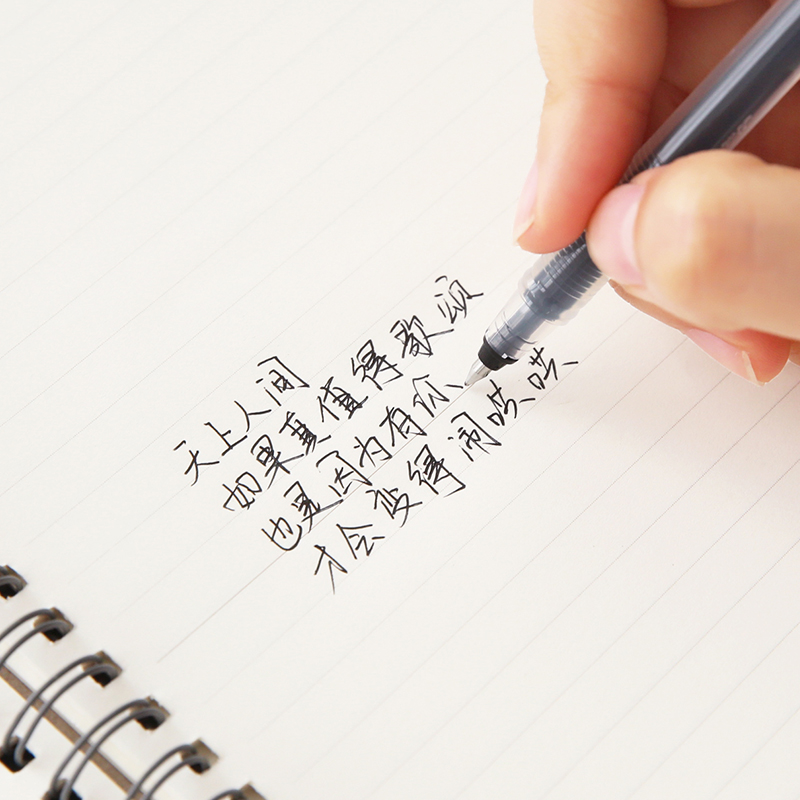 天上人间
如果真值得歌颂
也是因为有你
才会变得闹哄哄